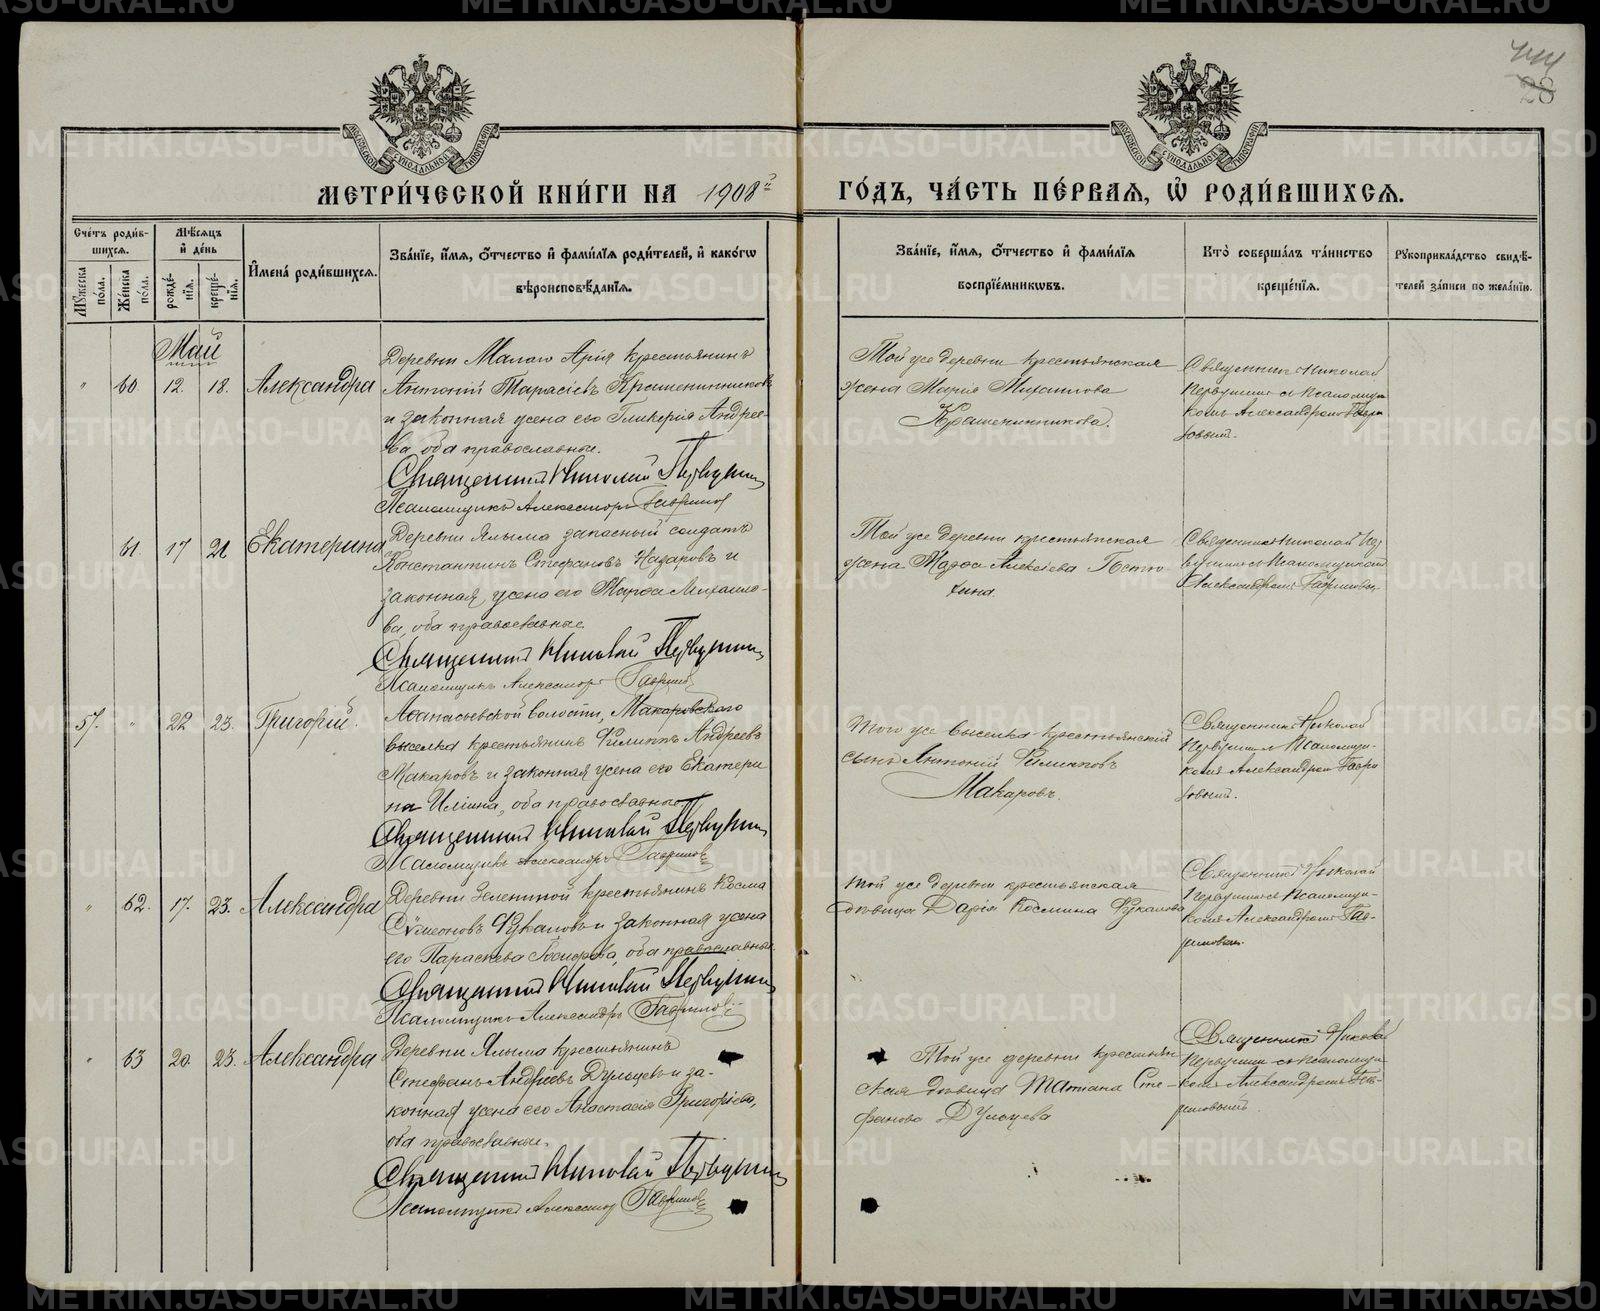 444
28
МОСКОВСКОЙ СѴНОДАЛЬНОЙ ТИПОГРАФІИ
МОСКОВСКОЙ СѴНОДАЛЬНОЙ ТИПОГРАФІИ
МЕТРИ́ЧЕСКОЙ КНИ́ГИ НА 1908й
ГО́ДЪ, ЧА́СТЬ ПЕ́РВАЯ, Ѡ РОДИ́ВШИХСЯ.
Сче́тъ роди́вшихся.
Му́жеска по́ла.
Же́нска по́ла.
Мѣ́сяцъ и де́нь
рожде́нія.
креще́нія.
И҆мена̀ роди́вшихся.
Зва́ніе, и҆́мя, ѻ҆́тчество и҆ фами́лія роди́телей, и҆ како́гѡ
вѣроисповѣ́данія.
Зва́ніе, и҆́мя, ѻ҆́тчество и҆ фами́лія
воспріе́мникѡвъ.
Кто̀ соверша́лъ та́инство
креще́нія.
Рукоприкла́дство свидѣ́-
телей за́писи по жела́нію.
Май
" 60 12. 18. Александра
Деревни Малаго Арія крестьянинъ
Антоній Тарасіевъ Крашенинниковъ
и законная жена его Гликерія Андрее-
ва, оба православные.
Священникъ Николай Первушинъ
Псаломщикъ Александръ Гавриловъ
Той же деревни крестьянская
жена Марія Михаилова
Крашенинникова.
Священникъ Николай
Первушинъ съ Псаломщи-
комъ Александромъ Гаври
ловымъ.
61. 17 21 Екатерина
Деревни Ялыма запасный солдатъ
Константинъ Стефановъ Назаровъ и
законная жена его Марѳа Михаило-
ва, оба православные.
Священникъ Николай Первушинъ
Псаломщикъ Александръ Гавриловъ
Той же деревни крестьянская
жена Марѳа Алексіева Постю
хина.
Священникъ Николай Пер
вушинъ съ Псаломщикомъ
Александромъ Гавриловымъ
57. " 22 23. Григорій.
Аѳанасьевской волости, Макаровского
выселка крестьянинъ Филиппъ Андреевъ
Макаровъ и законная жена его Екатери
на Иліина, оба православные.
Священникъ Николай Первушинъ
Псаломщикъ Александръ Гавриловъ
Того же выселка крестьянскій
сынъ Антоній Филипповъ
Макаровъ.
Священникъ Николай
Первушинъ съ Псаломщи-
комъ Александромъ Гаври
ловымъ.
" 62. 17. 23. Александра
Деревни Зелениной крестьянинъ Косма
Сѵмеоновъ Фукаловъ и законная жена
его Параскева, оба православные.
Священникъ Николай Первушинъ
Псаломщикъ Александръ Гавриловъ
Той же деревни крестьянская
дѣвица Дарія Космина Фукалова
Священникъ Николай
Первушинъ съ Псаломщи-
комъ Александромъ Гав-
риловымъ.
" 63 20. 23. Александра
Деревни Ялыма крестьянинъ
Стефанъ Андреевъ Дульцевъ и за-
конная жена его Анастасія Григоріева,
оба православные.
Священникъ Николай Первушинъ
Псаломщикъ Александръ Гавриловъ
Той же деревни крестьян
ская дѣвица Татіана Сте-
фанова Дульцева
Священникъ Николай
Первушинъ съ Псаломщи-
комъ Александромъ Гав-
риловымъ.
METRIKI.GASO-URAL.RU